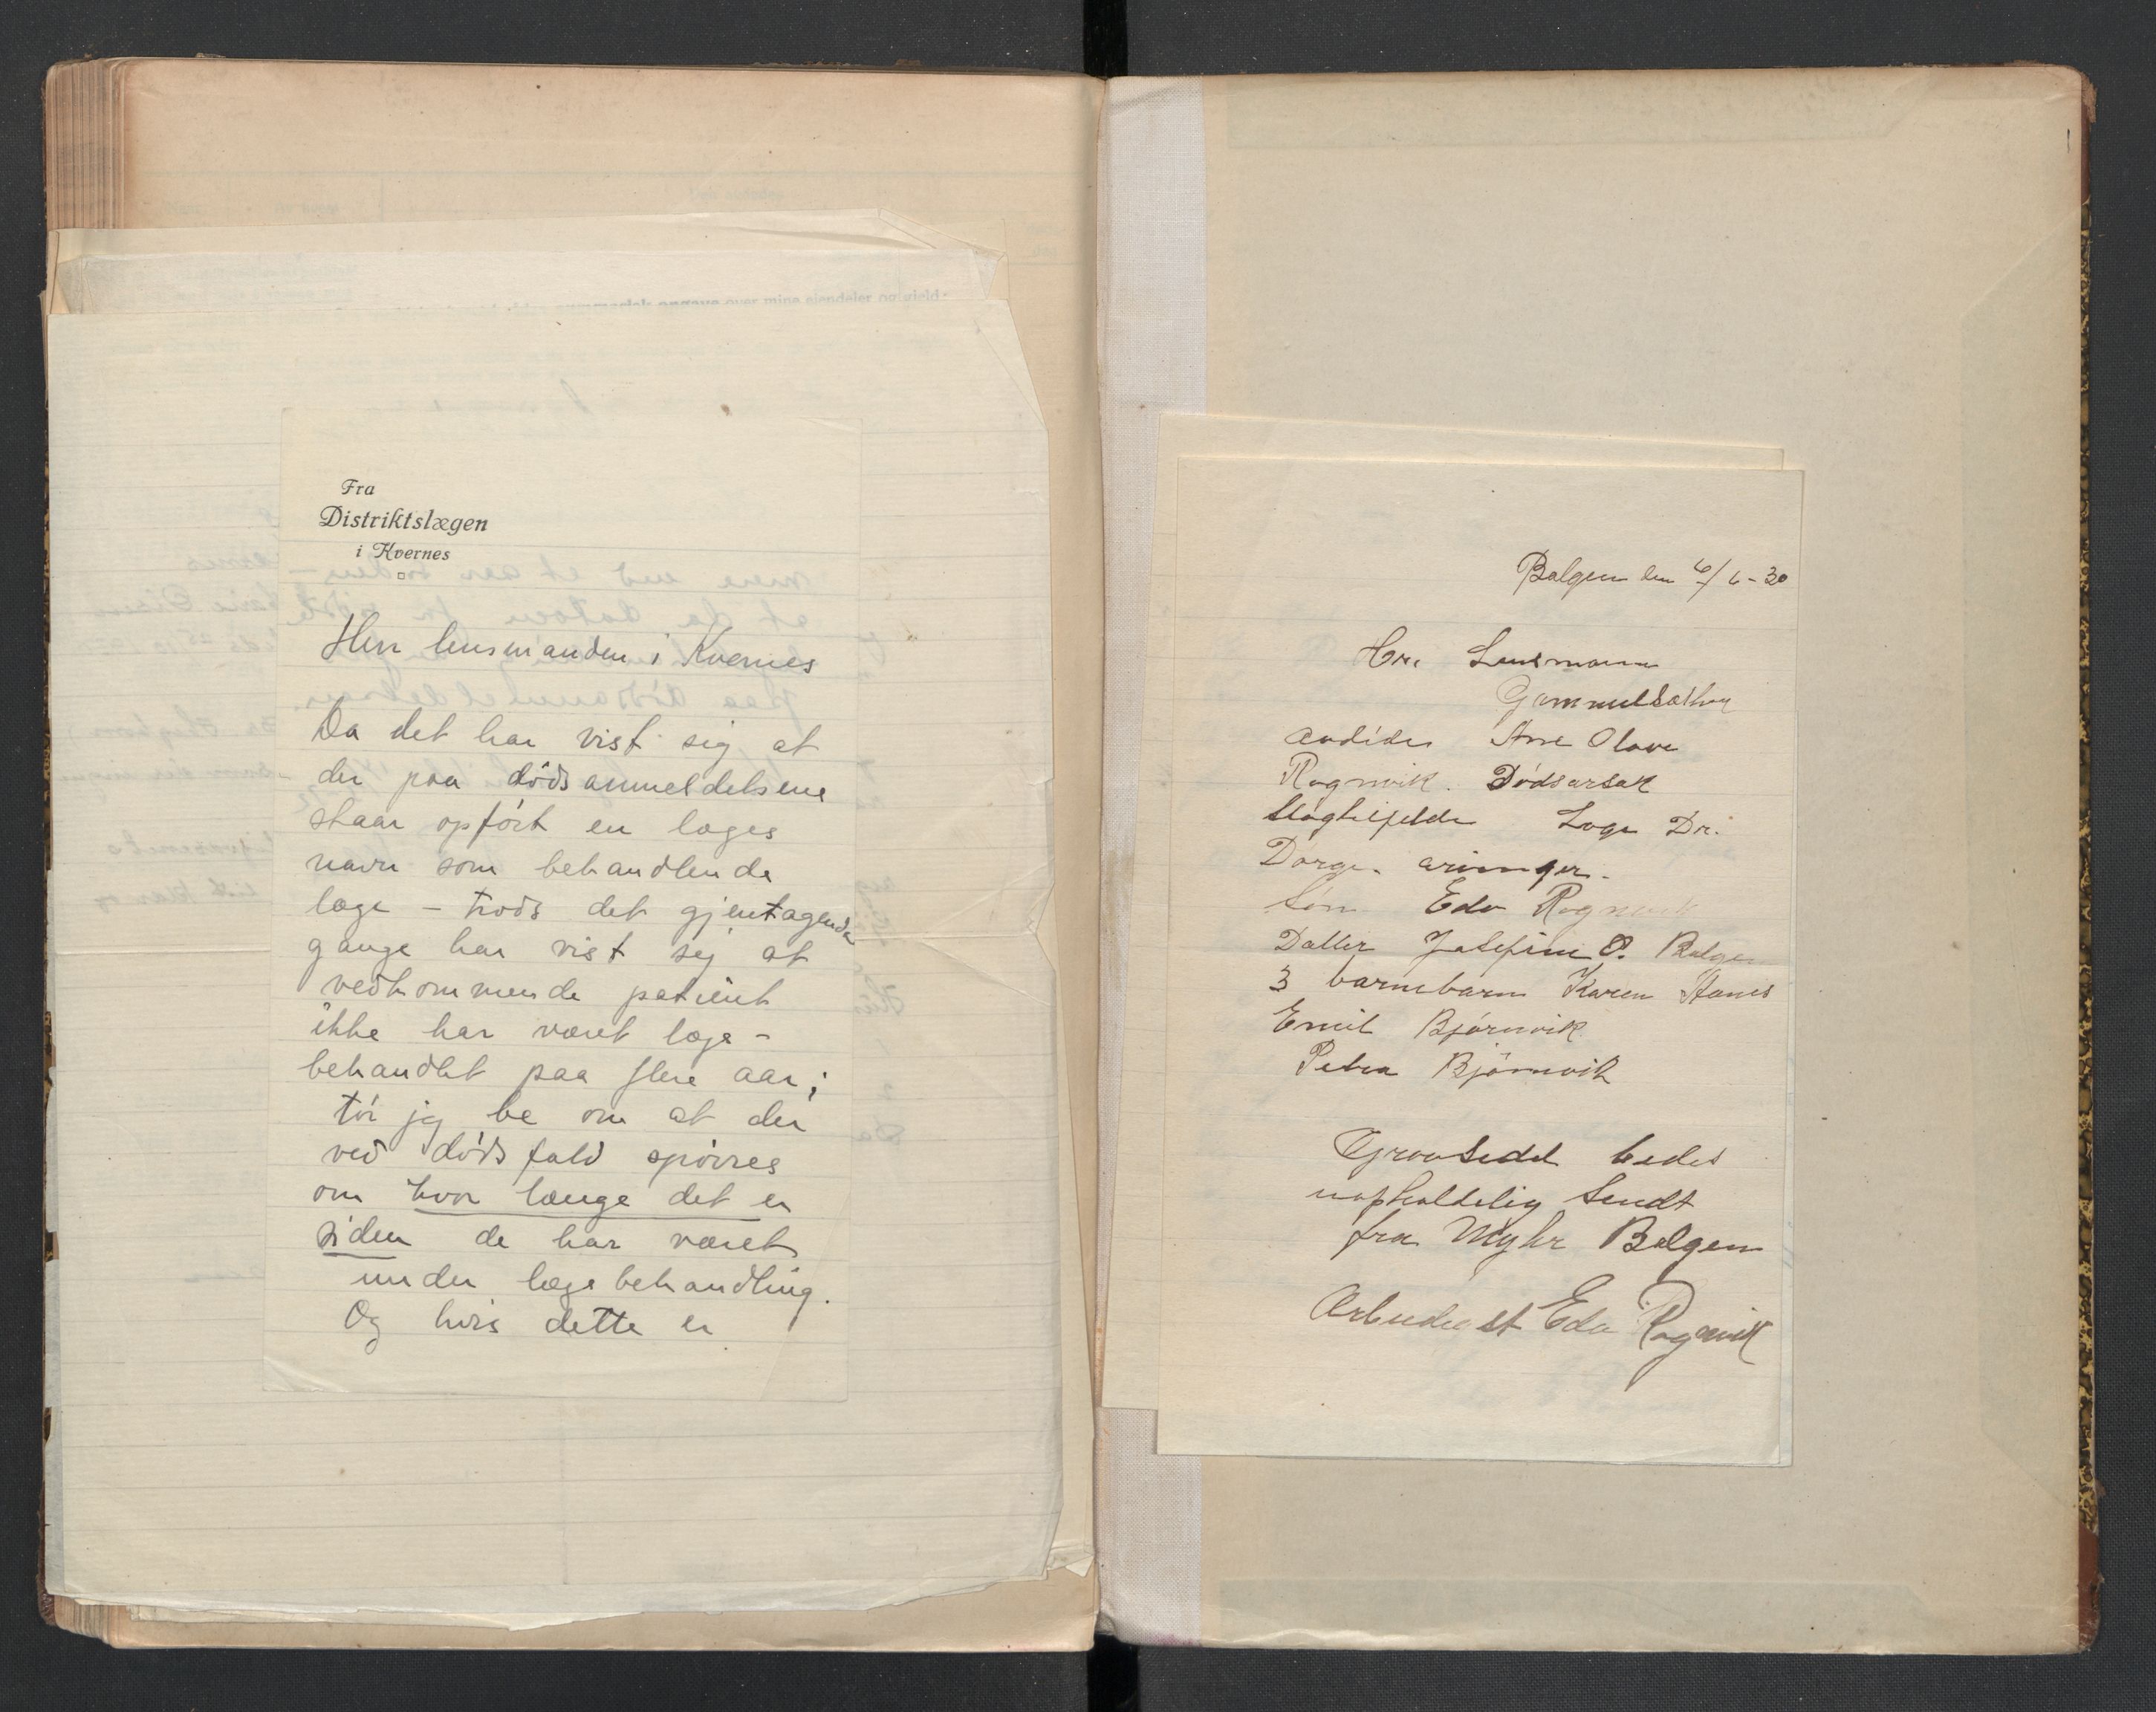 Fra
Distriktslægen
i Kvernes
Herr lensmanden i Kvernes
Da det har vist sig at
der paa dødsanmeldelsene
staar opført en læges
navn som behandlende
læge – trods det gjentagende
gange har vist sig at
vedkommende patient
ikke har været læge-
behandlet paa flere aar;
tør jeg be om at der
ved dødsfald spørres
om hvor længe det er
siden de har været
under lægebehandling.
Og hvis dette er
Bolgen den 6/6-30
Hr. Lensmann
Gammelsæther
Avdøde Ane Olava
Rognvik. Dødsarsak
Slagtilfelde Læge Dr.
Dorge. arvinger.
Søn Edv Rognvik
Datter Josefine O. Bolgen
3 barnebarn Karen Stanes
Emil Bjørnvik
Petra Bjørnvik
Gravsedel bedes
uopholdelig sendt
fra Myhr Bolgen
Ærbødigst Edv Rognvik